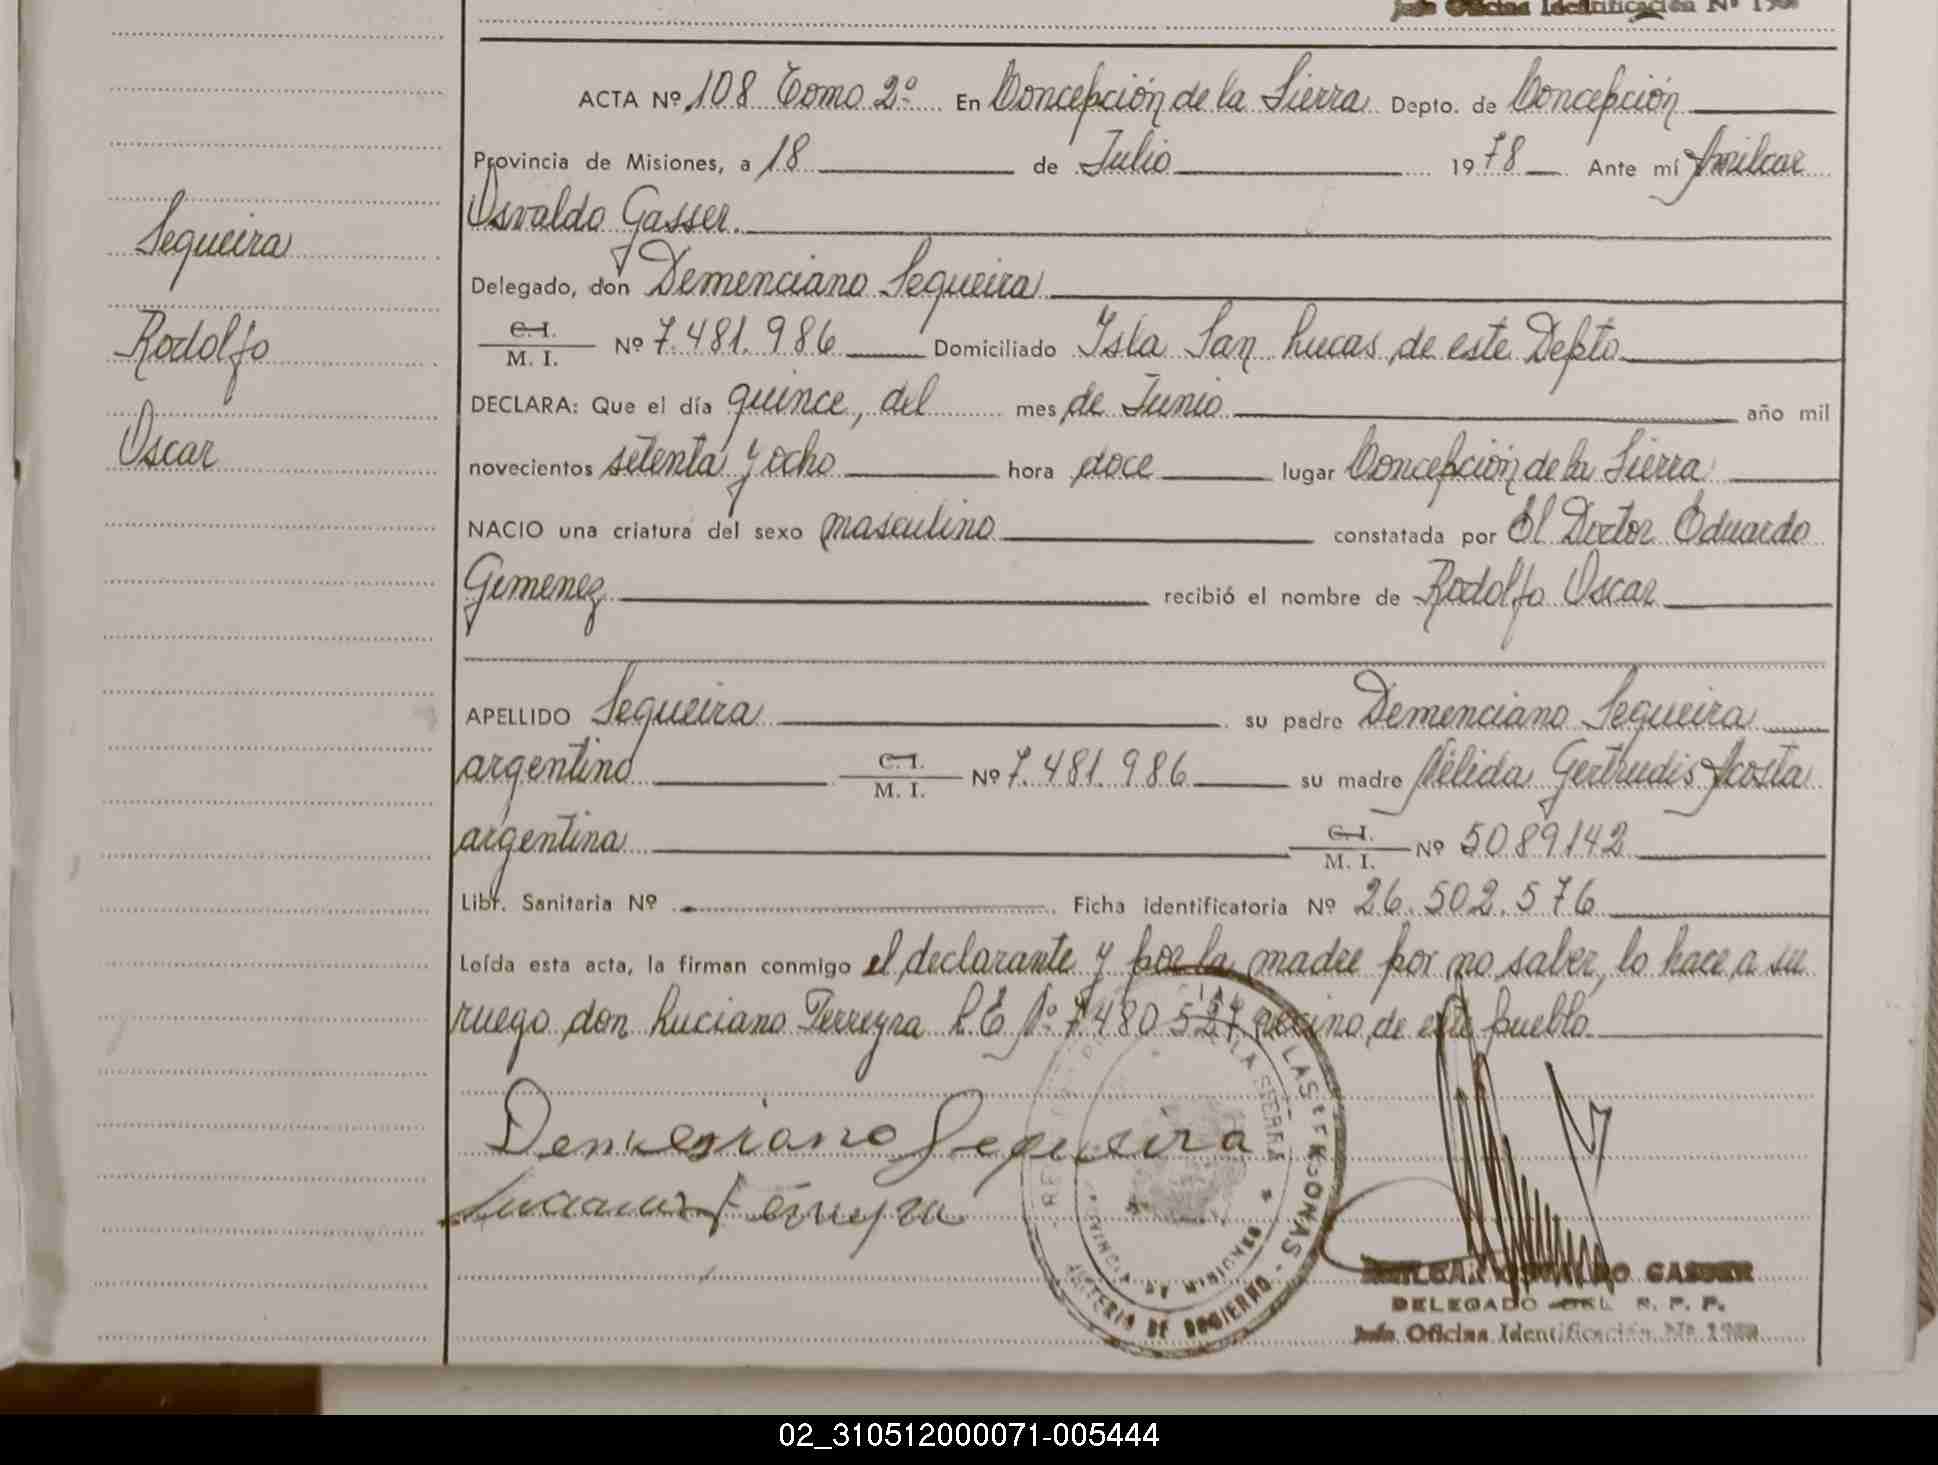 Jefe Oficina Identificación Nº
ACTA Nº 108 Tomo 2º En Concepción de la Sierra Depto. de Concepción
Provincia de Misiones, a 18 de Julio 1978 Ante mí Amilcar
Osvaldo Gasser.
Delegado, don Demenciano Sequeira
C. I.
M. I. Nº 7.481.986 Domiciliado Isla San Lucas de este Depto
DECLARA: Que el día quince, del mes de Junio año mil
novecientos setenta y ocho hora doce lugar Concepción de la Sierra
NACIO una criatura del sexo masculino constatada por El Doctor Eduardo
Gimenez recibió el nombre de Rodolfo Oscar
APELLIDO Sequeira su padre Demenciano Sequeira
argentino C. I.
M. I. Nº 7.481.986 su madre Nélida Gertrudis Acosta
argentina C. I.
M. I. Nº 5089142
Libr. Sanitaria Nº Ficha identificatoria Nº 26.502.576
Leída esta acta, la firman conmigo el declarante y por la madre por no saber, lo hace a su
ruego don Luciano Ferreyra L.E. Nº 7.480.527 vecino de este pueblo
Sequeira
Rodolfo
Oscar
Demenciano Sequeira
Luciano Ferreyra
DE LAS PERSONAS
LA SIERRA
PROVINCIA DE MISIONES
DE GOBIERNO
AMILCAR OSVALDO GASSER
DELEGADO DEL R. P. P.
Jefe Oficina Identificación Nº
02_310512000071-005444